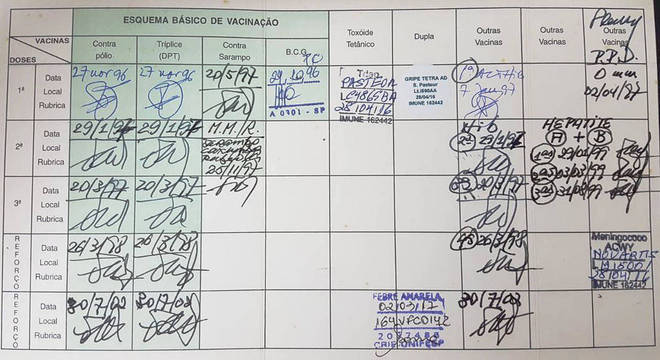 ESQUEMA BÁSICO DE VACINAÇÃO
VACINAS
DOSES
Contra pólio
Tríplice (DPT)
Contra Sarampo
B.C.G.
Toxóide Tetânico
Dupla
Outras Vacinas
Outras Vacinas
Outras Vacinas
P.P.D.
1ª
Data
Local
Rubrica
27 nov 96
27 nov 96
20/5/97
A 0701 - SP
PASTEUR
28/04/16
IMUNE 162442
GRIPE TETRA AD
S. Pasteur
28/04/16
IMUNE 162442
1ª ACTHIB
0 mm
2ª
Data
Local
Rubrica
29/1/97
29/1/97
M.M.R.
20/11/97
HIB
2ª 29/1/97
HEPATITE
A + B
1ª 29/01/99
2ª 03/03/99
3ª 31/08/99
3ª
Data
Local
Rubrica
20/3/97
20/3/97
3ª 20/3/97
REFORÇO
Data
Local
Rubrica
26/3/98
26/3/98
26/3/98
Meningococo
ACWY
NOVARTIS
28/04/16
IMUNE 162442
REFORÇO
Data
Local
Rubrica
30/7/02
30/7/02
FEBRE AMARELA
02/03/17
164VFC014Z
CRIE-UNIFESP
30/7/02